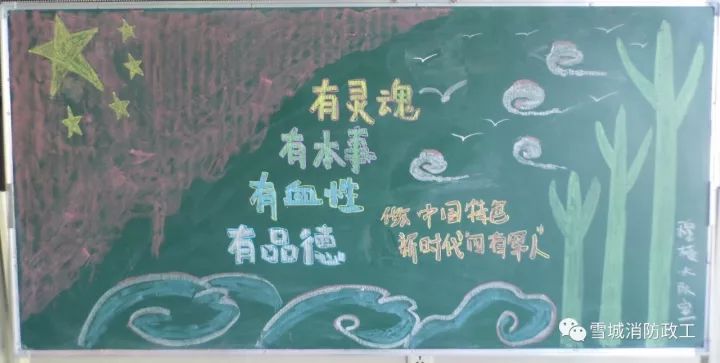 有灵魂
有本事
有血性
有品德
做中国特色
新时代四有军人
大队宣
雪城消防政工